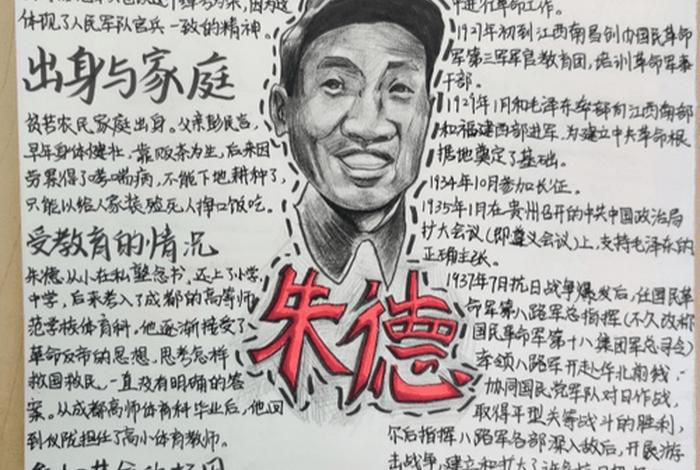 体现了人民军队官兵一致的精神。
出身与家庭
贫苦农民家庭出身。父亲彭民言,
早年身体健壮,靠贩茶为生,后来因
劳累得了哮喘病,不能下地耕种了,
只能以给人家装殓死人挣口饭吃。
受教育的情况
朱德从小在私塾念书,还上了小学,
中学,后来考入了成都的高等师
范学校体育科。他逐渐接受了
革命反帝的思想,思考怎样
救国救民,一直没有明确的答
案。从成都高师体育科毕业后,他回
到仪陇担任了高小体育教师。
朱德
中进行革命工作。
1927年初到江西南昌创办国民革命
军第三军军官教育团,培训革命军事
干部。
1929年1月和毛泽东率部向江西南部
和福建西部进军,为建立中央革命根
据地奠定了基础。
1934年10月参加长征。
1935年1月在贵州召开的中共中国政治局
扩大会议(即遵义会议)上,支持毛泽东的
正确主张。
1937年7月抗日战争爆发后,任国民革
命军第八路军总指挥(不久改称
国民革命军第十八集团军总司令)
率领八路军开赴华北前线,
协同国民党军队对日作战,
取得平型关等战斗的胜利,
尔后指挥八路军各部深入敌后,开展游
击战争,建立和扩大了